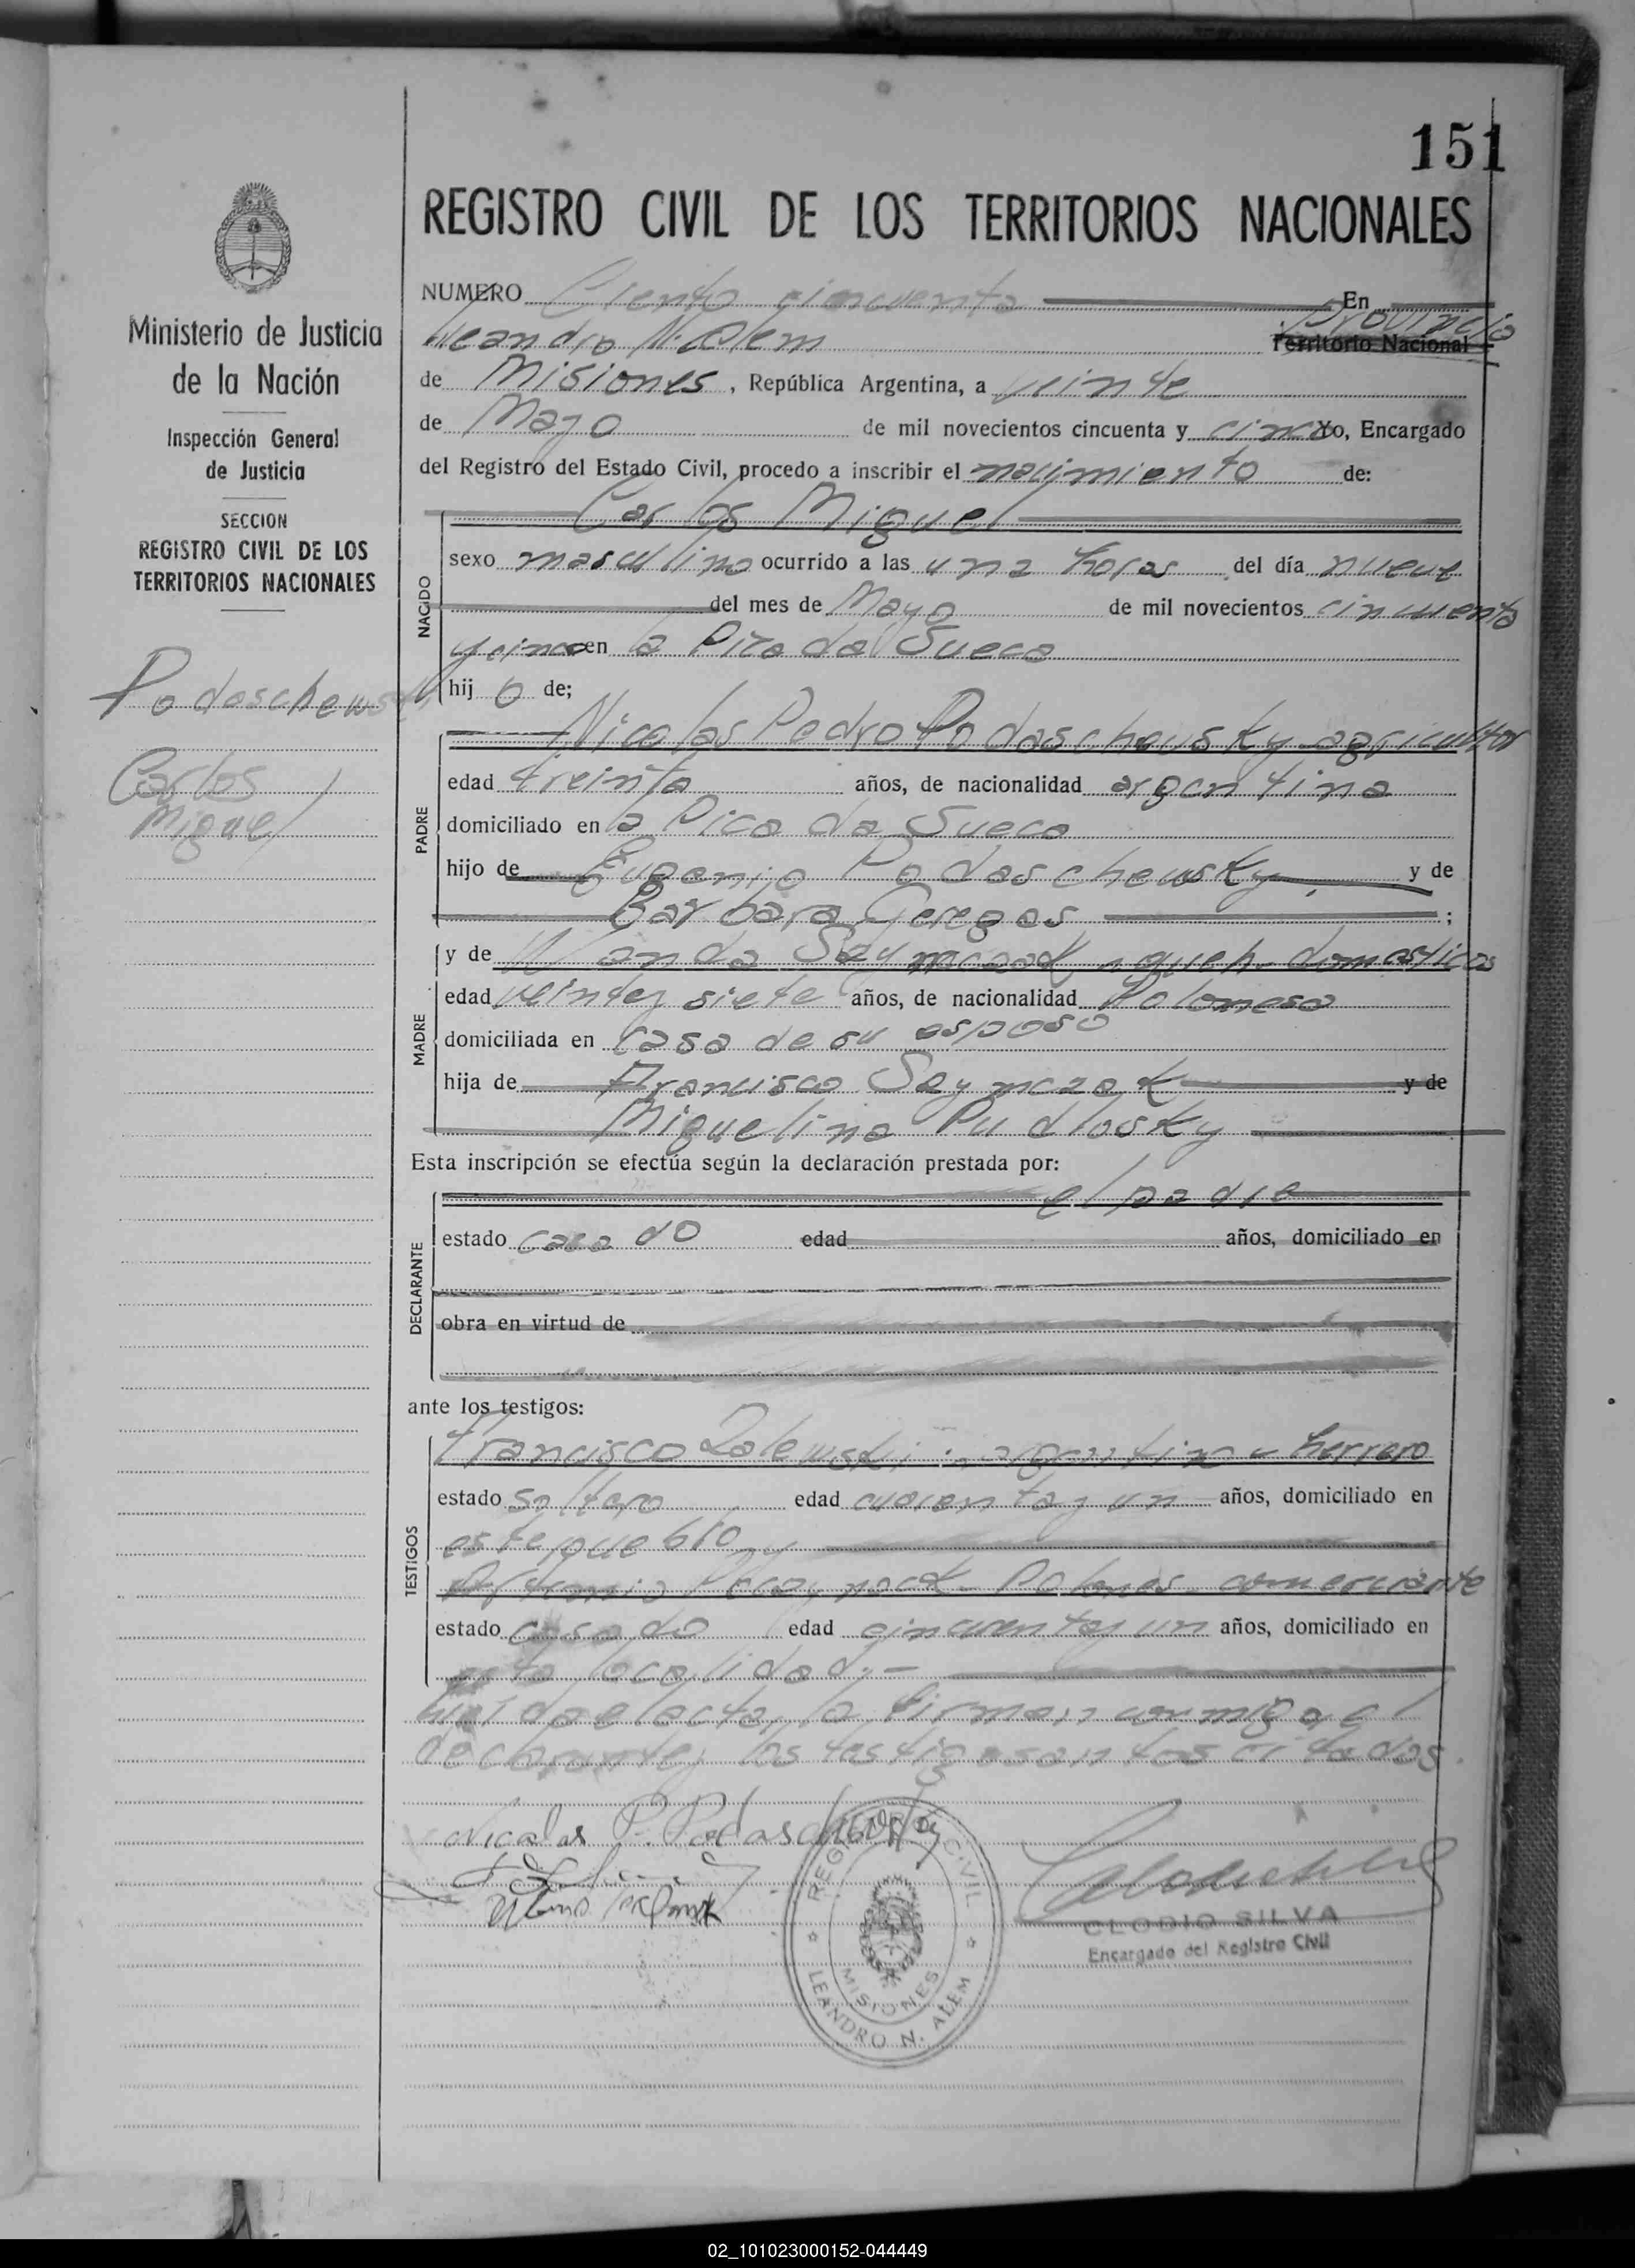 151
REGISTRO CIVIL DE LOS TERRITORIOS NACIONALES
Ministerio de Justicia
de la Nación
Inspección General
de Justicia
SECCION
REGISTRO CIVIL DE LOS
TERRITORIOS NACIONALES
Podaschewsky
Carlos
Miguel
NUMERO Ciento cincuenta En
Leandro N. Alem Provincia Territorio Nacional
de Misiones, República Argentina, a veinte
de Mayo de mil novecientos cincuenta y cinco Yo, Encargado
del Registro del Estado Civil, procedo a inscribir el nacimiento de:
NACIDO
Carlos Miguel
sexo masculino ocurrido a las una horas del día nueve
del mes de Mayo de mil novecientos cincuenta
y cinco en la Picada Sueca
hijo de;
PADRE
Nicolas Pedro Podaschewsky agricultor
edad treinta años, de nacionalidad argentina
domiciliado en la Picada Sueca
hijo de Eugenio Podaschewsky y de
Barbara Geregos;
MADRE
y de Wanda Seymczak domesticos
edad veintey siete años, de nacionalidad Polonesa
domiciliada en casa de su esposo
hija de Francisco Seymczak y de
Miguelina Pudlosky
Esta inscripción se efectúa según la declaración prestada por:
DECLARANTE
el padre
estado casado edad años, domiciliado en
obra en virtud de
ante los testigos:
TESTIGOS
Francisco Zalewski argentino herrero
estado soltero edad cuarentay un años, domiciliado en
este pueblo y
Polones comerciante
estado casado edad cincuentay un años, domiciliado en
esta localidad.-
Leida el acta, la firman conmigo el
declarante y los testigos antes citados.
Nicolas P. Podaschewsky
REGISTRO CIVIL
MISIONES
LEANDRO N. ALEM
CLODIO SILVA
Encargado del Registro Civil
02_101023000152-044449